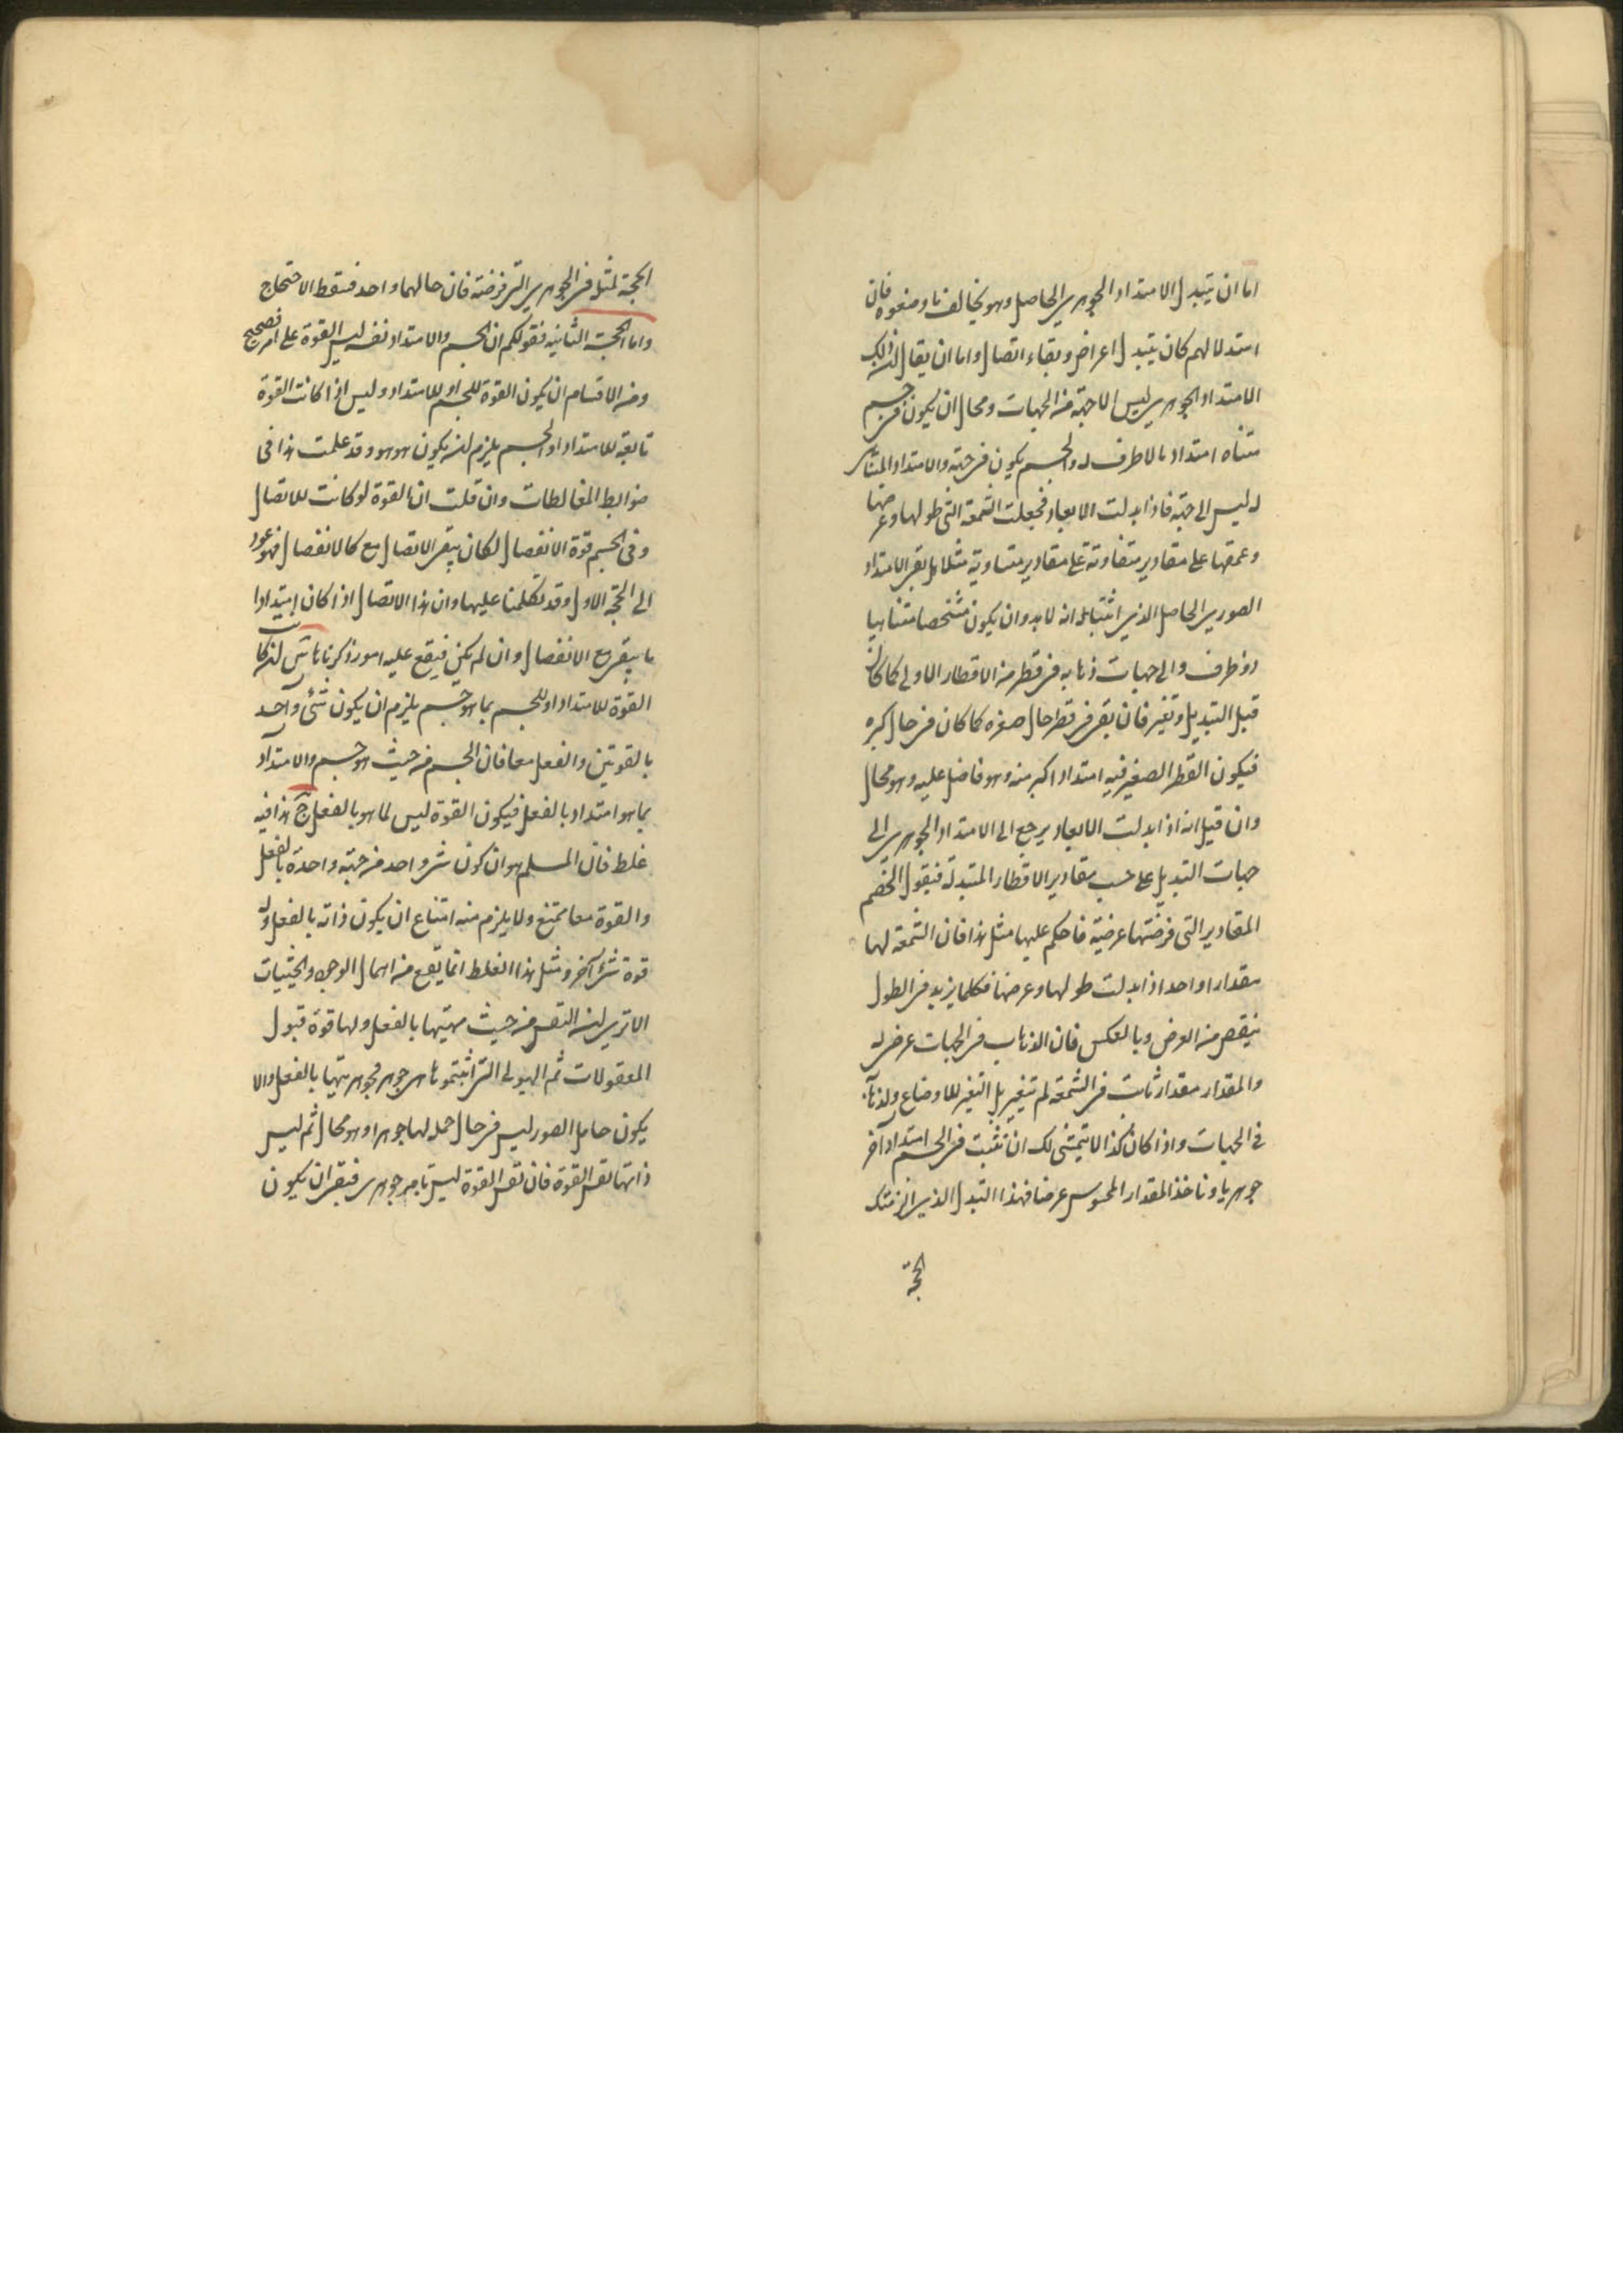 اما ان يتبدل الامتداد الجوهرى الحاصل وهو يخالف ما وضعوه فان
استدلالهم كان بتبدل اعراض وبقاء اتصال واما ان يقال ان ذلك
الامتداد الجوهرى ليس الا جهة من الجهات ومحال ان يكون فى جسم
متناه امتداد بالا طرف له والجسم يكون فى جهة والامتداد المتناهى
له ليس الى جهة فاذا بدلت الابعاد فجعلت الشمعة التى طولها وعرضها
وعمقها على مقادير متفاوتة على مقادير متساوية مثلا هل بقى الامتداد
الصورى الحاصل الذى اثبتناه انه لابد وان يكون متشخصا متناهيا
ذو طرف والى جهات ذهابه فى قطر من الاقطار الاولى كما كان
قبل التبديل وتغير فان بقى فى قطر حال صغره كما كان فى حال كبره
فيكون القطر الصغير فيه امتداد اكبر منه وهو فاضل عليه وهو محال
وان قيل انه اذا بدلت الابعاد يرجع الى الامتداد الجوهرى الى
جهات التبديل على حسب مقادير الاقطار المتبدلة فيقول الخصم
المقادير التى فرضتها عرضية فاحكم عليها مثل هذا فان الشمعة لها
مقدارا واحدا اذا بدلت طولها وعرضها فكلما يزيد فى الطول
ينقص من العرض وبالعكس فان الذهاب فى الجهات عرض له
والمقدار مقدار ثابت فى الشمعة لم تتغير بل التغير للاوضاع ولذهاب
فى الجهات واذا كان كذا لا يتمشى لك ان تثبت فى الجسم امتدادا آخر
جوهريا وتأخذ المقدار المحسوس عرضا فهذا التبدل الذى الزمتك
الحجة
الحجة لمثله فى الجوهرى التى فرضته فان حالهما واحد فسقط الاحتجاج
واما الحجة الثانية فقولكم ان الجسم والامتداد نفسه ليس القوة على امر فصحيح
ومن الاقسام ان يكون القوة للجسم او للامتداد وليس اذا كانت القوة
تابعة للامتداد او الجسم يلزم ان يكون هو هو وقد علمت هذا فى
ضوابط المغالطات وان قلت ان القوة لو كانت للاتصال
وفى الجسم قوة الانفصال لكان يبقى الاتصال مع كالانفصال فهو عود
الى الحجة الاولى وقد تكلمنا عليها وان هذا الاتصال اذا كان امتدادا
ما يبقى مع الانفصال وان لم يكن فيقع عليه امور ذكرناها
القوة للامتداد او للجسم بما هو جسم يلزم ان يكون شئ واحد
بالقوتين والفعل معا فان الجسم من حيث هو جسم والامتداد
بما هو امتداد بالفعل فيكون القوة ليس لما هو بالفعل ج هذا فيه
غلط فان المسلم هو ان كون شئ واحد من جهة واحدة بالفعل
والقوة معا ممتنع ولا يلزم منه امتناع ان يكون ذاته بالفعل وله
قوة شئ آخر ومثل هذا الغلط انما يقع من اهمال الوجوه والحيثيات
الا ترى ان النفس من حيث مهيتها بالفعل ولها قوة قبول
المعقولات ثم الهيولى التى اثبتموها هى جوهر فجوهريتها بالفعل والا
يكون حامل الصور ليس فى حال حمله لها جوهرا وهو محال ثم ليس
ذاتها نفس القوة فان نفس القوة ليس بامر جوهرى فبقى ان يكون